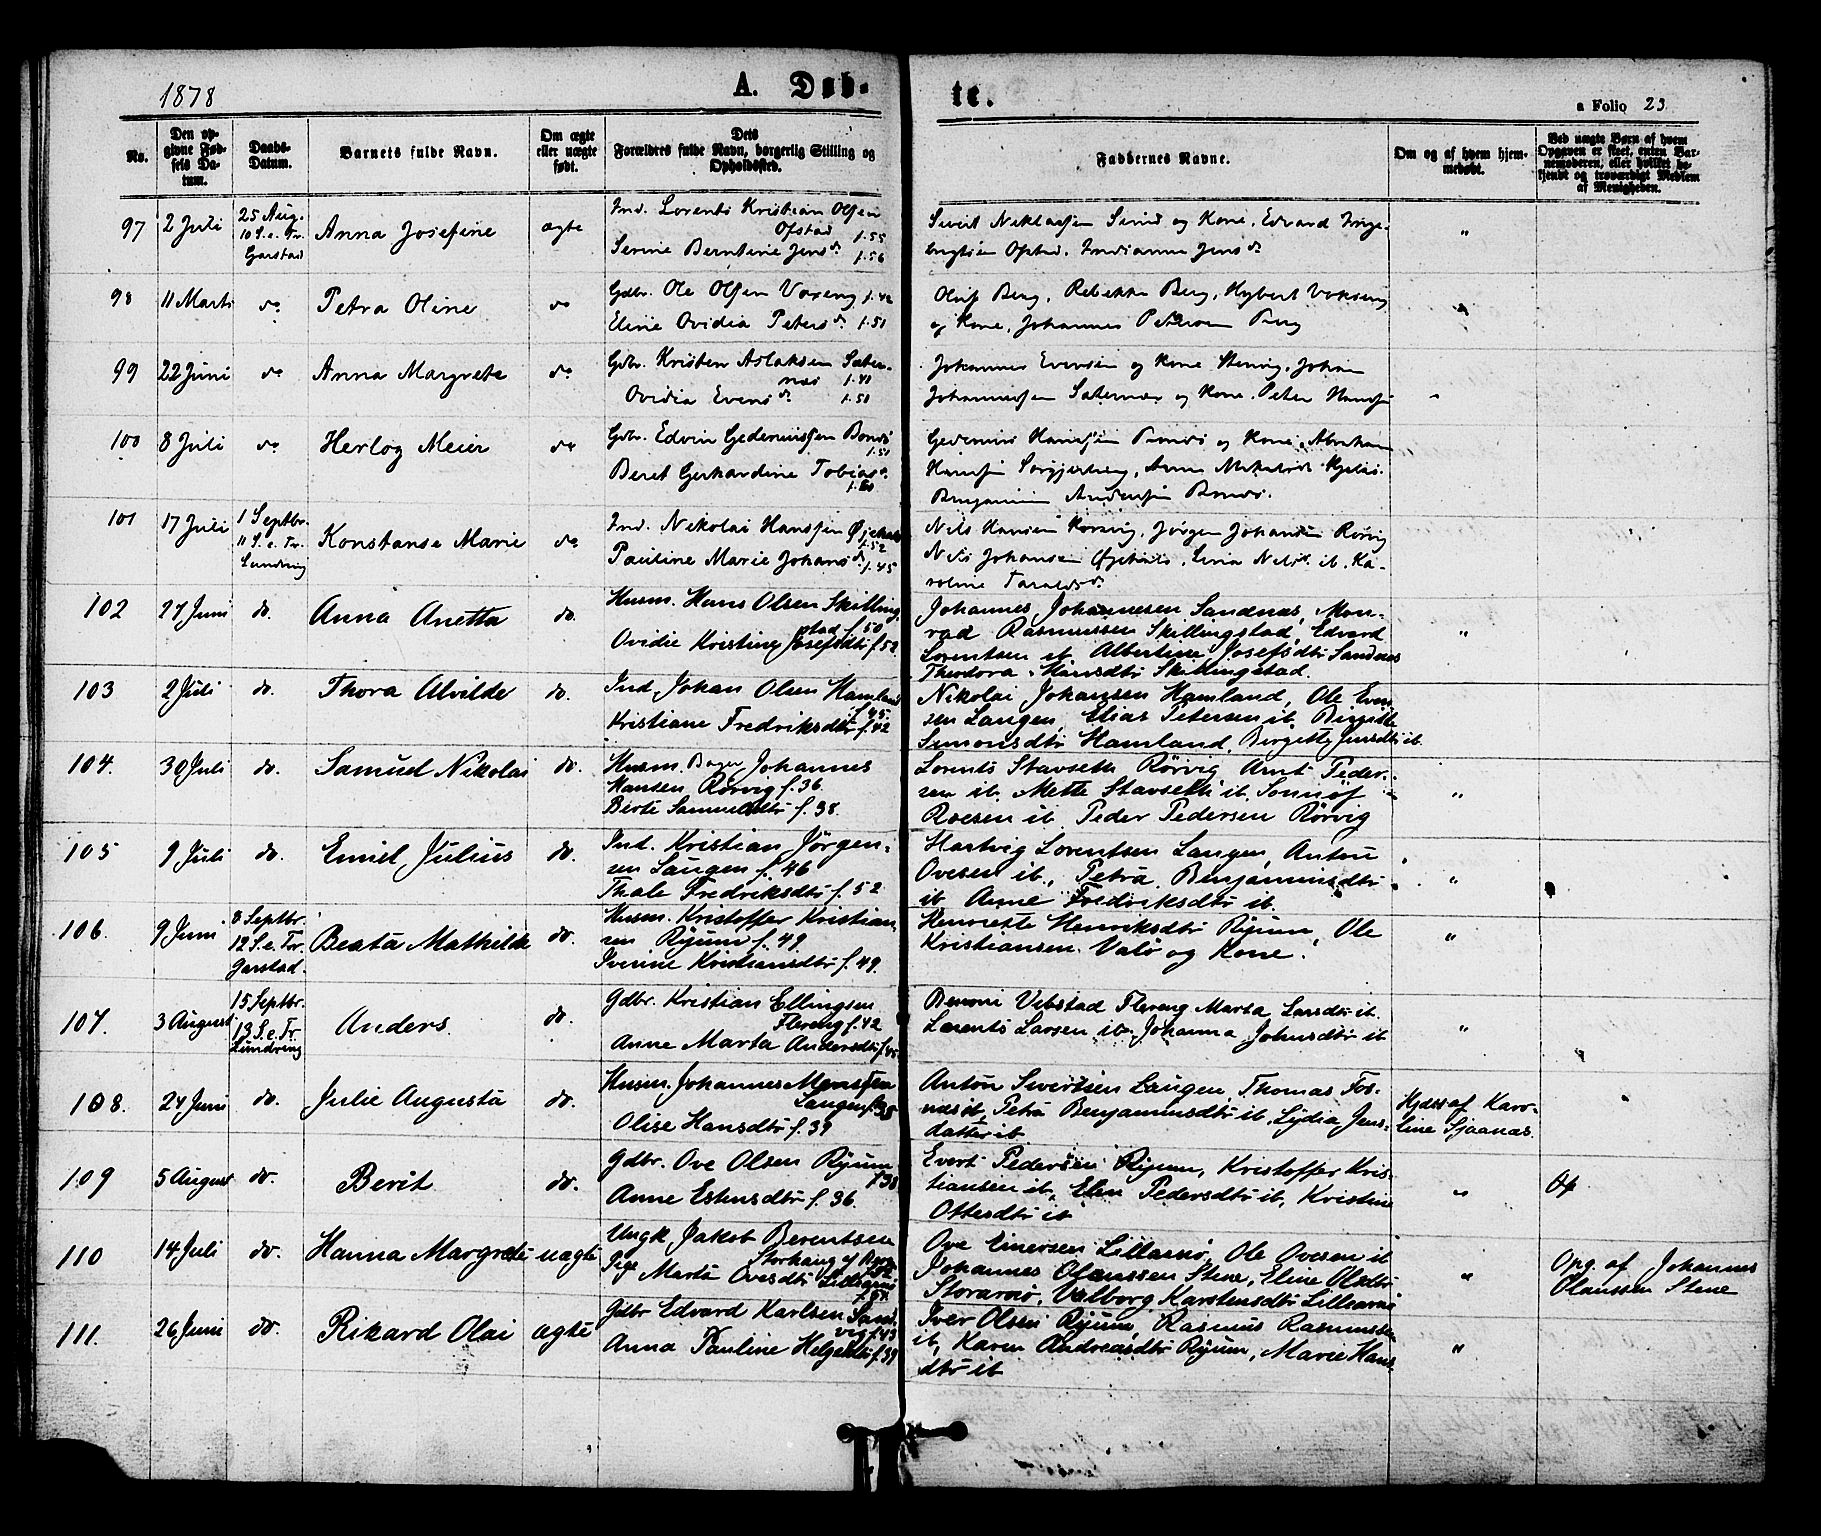 1878
A. Døbte.
a Folio 23
No.
Den opgivne Fødsels Datum.
Daabs-Datum.
Barnets fulde Navn.
Om ægte eller uægte født.
Dets Forældres fulde Navn, borgerlig Stilling og Opholdssted.
Faddernes Navne.
Om og af hvem hjemmedøbt.
Ved uægte Børn af hvem Opgaven er skeet, enten Barnemoderen, eller hvilket bekjendt og troværdigt Medlem af Menigheden.
97 2 Juli 25 Aug. 10 S. e. Tr. Garstad Anna Josefine ægte
Ind. Lorents Kristian Olsen
Ofstad f.55
Serine Berntine Jensd. f.56
Sivert Niklassen Sund og Kone, Edvard Inge-
brigtsen Ofstad, Indianna Jensd. "
98 11 Marts do Petra Oline do
Gdbr. Ole Olsen Voxeng f.42
Eline Ovidia Petersd. f.51
Oluf Berg, Rebekka Berg, Hybert Vokseng
og Kone, Johannes Petersen Berg "
99 22 Juni do Anna Margrete do
Gdbr. Kristen Aslaksen Sæter-
næs f.41
Ovidia Evensd. f.51
Johannes Evensen og Kone, Johan
Johannessen Sæternæs og Kone, Peter Hansen "
100 8 Juli do Herlog Meier do
Gdbr. Edvin Gederiussen
f.51
Beret Gerhardine Tobiasd.
Hansen og Kone, Abraham
Hansen Anna
Benjamin Andersen
101 17 Juli 1 Septbr. 11 S. e. Tr. Lundring Konstanse Marie do
Ind. Nikolai Hanssen
f.52
Pauline Marie Johansd. f.45
Nils Hansen Jørgen Johansen Rørvig
Nils Johansen Nilsd. ib. Ka-
roline Taraldsd.
102 27 Juni do. Anna Anetta do.
Husm. Hans Olsen Skilling
stad f.50
Ovidie Kristine Josefsdtr f.52
Johannes Johannesen Sandnæs, Mon-
rad Rasmussen Skillingstad, Edvard
Lorentsen ib. Albertine Josefsdtr Sandnæs
Theodora Hansdtr Skillingstad. "
103 2 Juli do. Thora Alvilde do.
Ind. Johan Olsen Hamland
f.45.
Kristiane Fredriksdtr f.42
Nikolai Johansen Hamland, Ole Even
sen Laugen, Elias Petersen ib. Birgitte
Simonsdtr Hamland, Birgitte Jensdtr ib.
104. 30 Juli do. Samuel Nikolai do.
Husm. Bager Johannes
Hansen Rørvig f.36
Berte Samuelsdtr f.38.
Lorents Stavseth Rørvig, Arnt Peder-
sen ib. Mette Stavseth ib. Sonnøf
Roesen ib. Peder Pedersen Rørvig "
105 9 Juli do. Emiel Julius do.
Ind. Kristian Jørgen-
sen Laugen f.46
Thale Fredriksdtr f.52
Hartvig Lorentsen Laugen, Anton
Ovesen ib., Petra Benjaminsdtr
ib Anne Fredriksdtr ib. "
106. 9 Juni 8 Septbr. 12 S. e. Tr. Garstad. Beata Mathilde do.
Husm. Kristoffer Kristian
sen Ryum f.49
Iverine Kristiansdtr f.49.
Henriette Henriksdtr Ryum, Ole
Kristiansen Valø og Kone. "
107. 3 August 15 Septbr. 13 S. e. Tr. Lundring Anders. do.
Gdbr. Kristian Ellingsen
Flereng f.42
Anne Marta Andersdtr f.45
Benoni Vibstad Flereng Marta Larsdtr ib.
Lorents Larsen ib. Johanna Johnsdtr ib "
108. 24 Juni do. Julie Augusta do.
Husm. Johannes Monssen
Laugen f.35
Olise Hansdtr f.39
Anton Sivertsen Laugen, Thomas Fos-
næs ib, Petra Benjaminsdtr ib, Lydia Jens-
datter ib.
Hjdøbt af Karo-
line Sjaanæs.
109 5 August do. Berit do.
Gdbr. Ove Olsen Ryum
f.38
Anne Estensdtr f.36.
Evert Pedersen Ryum, Kristoffer Kris-
tiansen ib, Elen Pedersdtr ib, Kristine
Ottersdtr ib "
110 14 Juli do. Hanna Margrete uægte
Ungk. Jakob Berentsen
Pige Marta Ovesdtr Lillearnø
Ove Einersen Lillearnø, Ole Ovesen ib
Johannes Olaussen Stene, Eline Olsdtr
Storarnø, Valborg Karstensdtr Lillearnø "
Opg. af Johannes
Olaussen Stene
111. 26 Juni do. Rikard Olai ægte
Gdbr Edvard Karlsen Sand-
vig f.43
Anna Pauline Helgesdtr f.39
Iver Olsen Ryum, Rasmus Rasmussen
ib, Karen Andreasdtr Ryum, Marie Hans-
dtr ib "